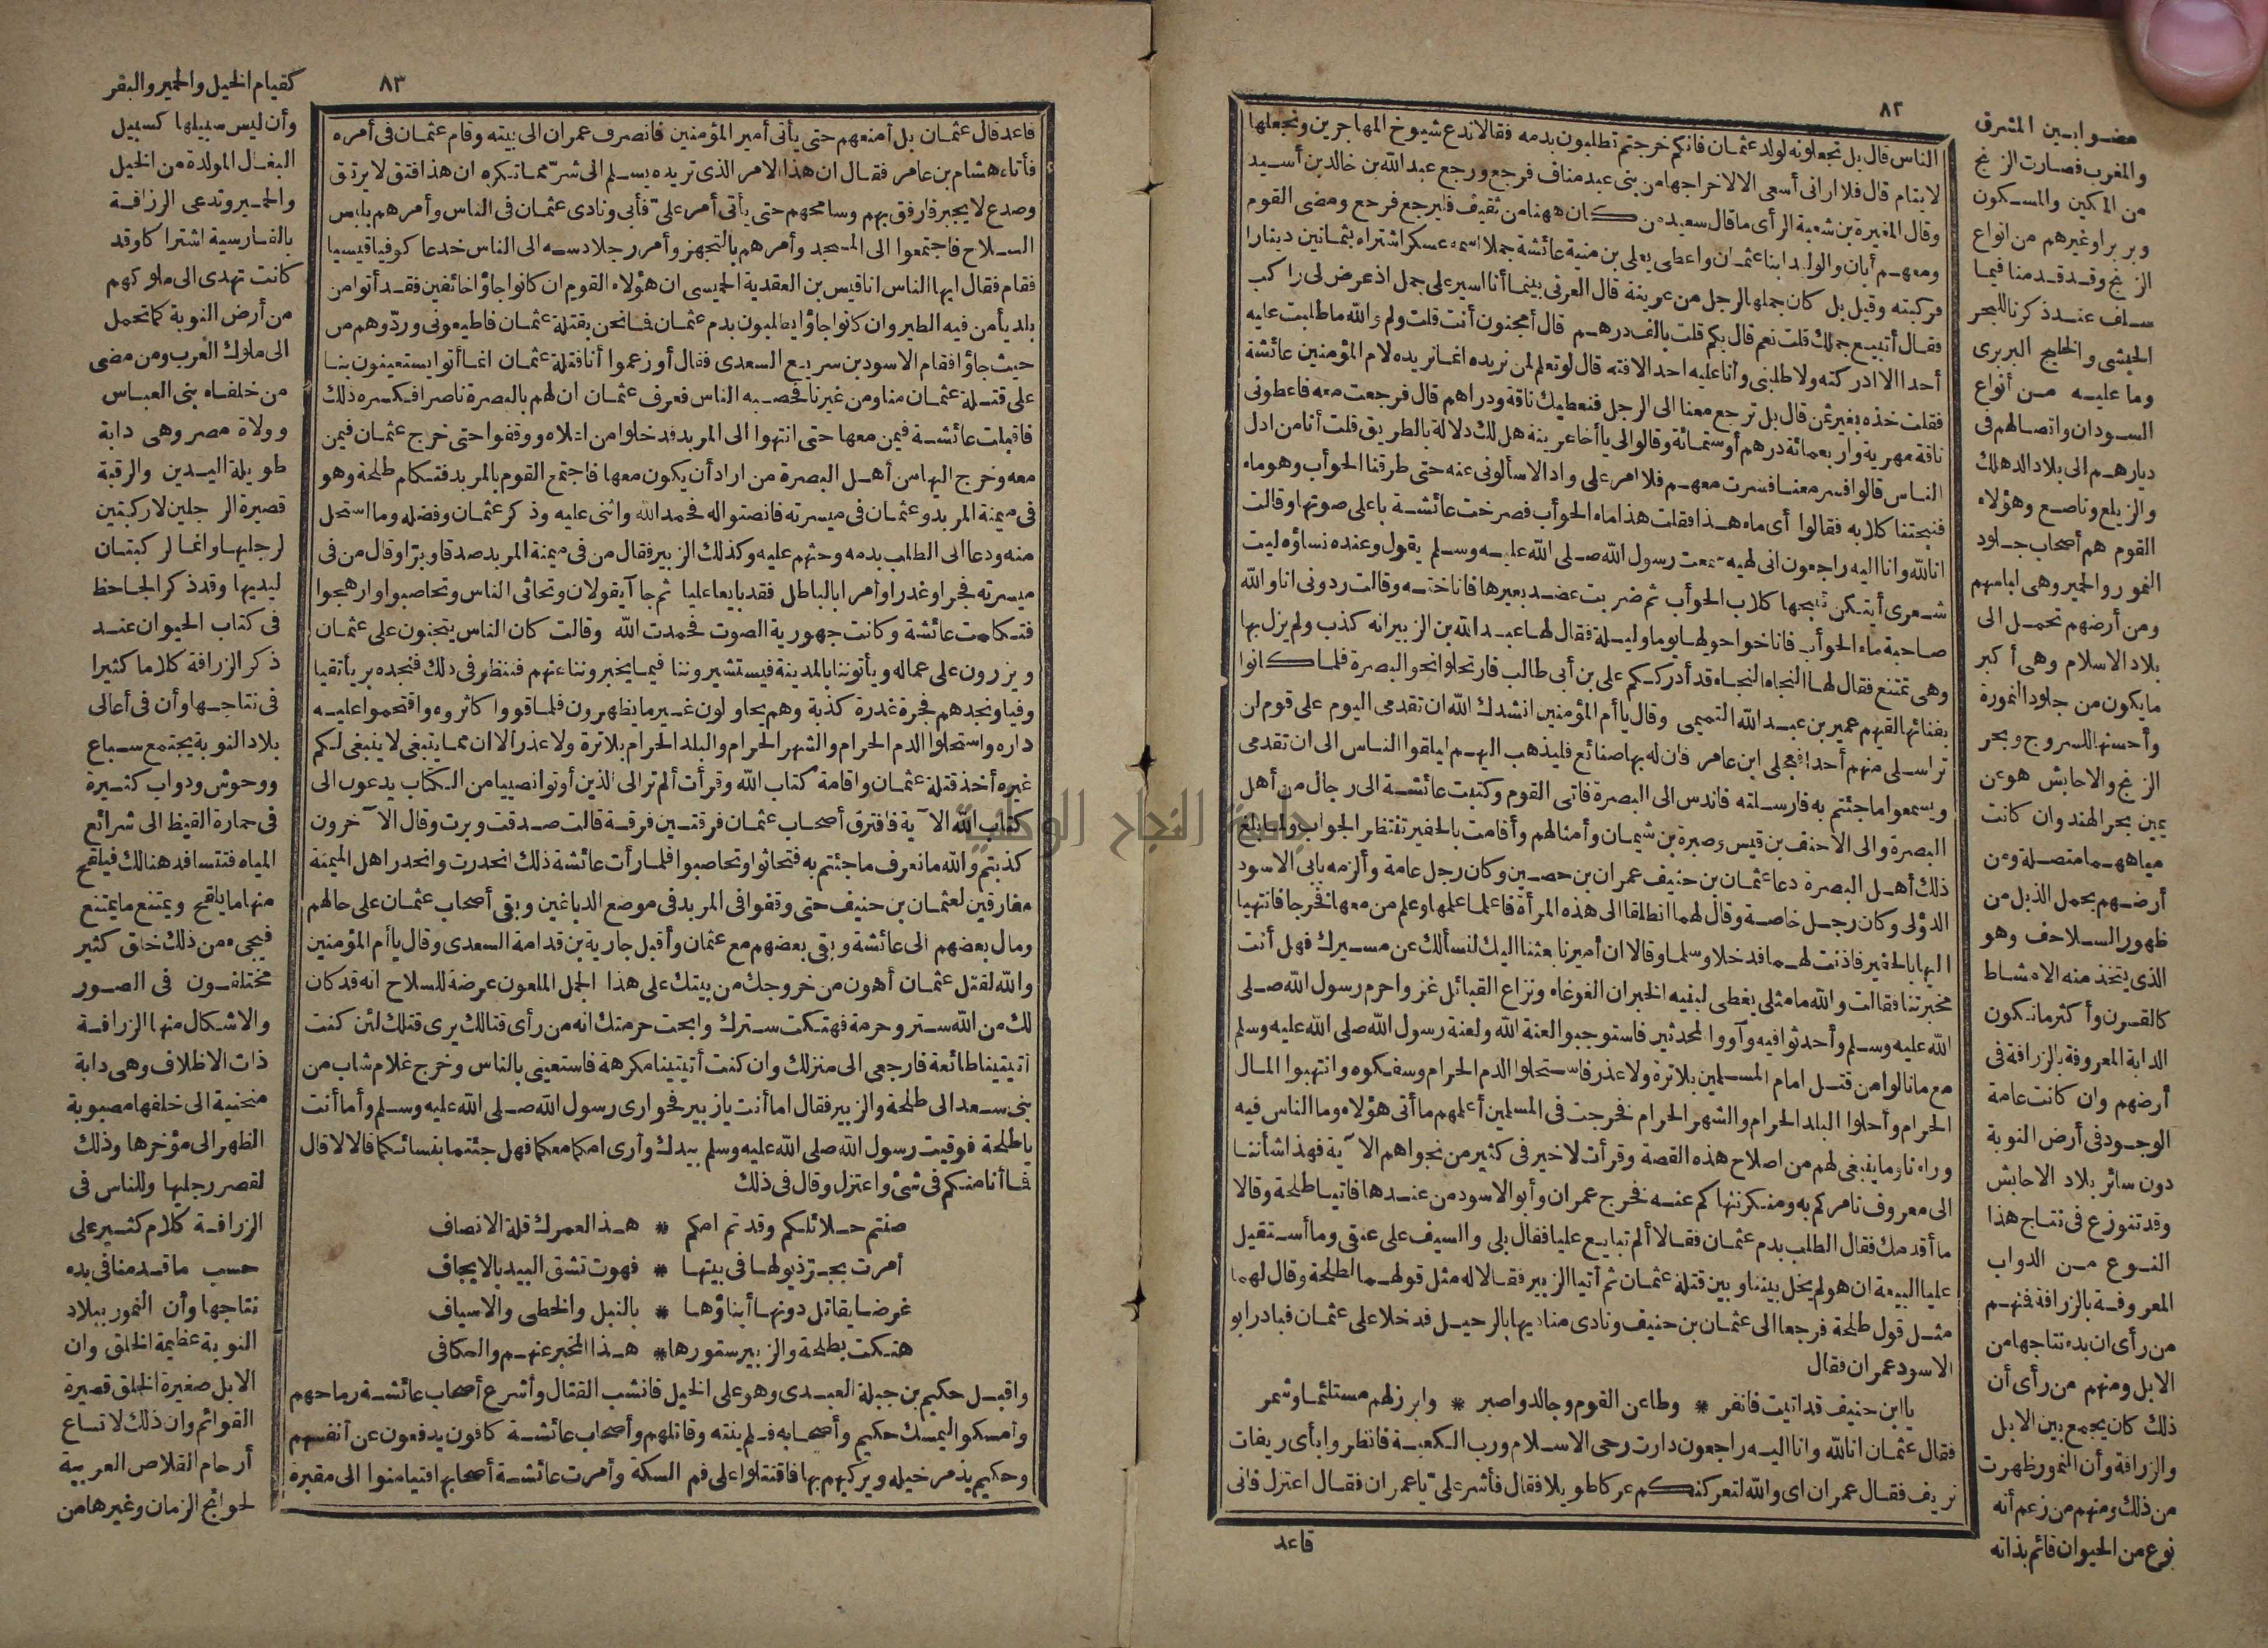 ٨٢
مضوا بين المشرق
والمغرب فصارت الزنج
من المكين والمسكون
وبربر وغيرهم من انواع
الزنج وقد قدمنا فيما
سلف عند ذكرنا للبحر
الحبشى والخليج البربرى
وما عليه من أنواع
السودان واتصالهم فى
ديارهم الى بلاد الدهلك
والزيلع وناصع وهؤلاء
القوم هم أصحاب جلود
النمور والحمر وهى لباسهم
ومن أرضهم تحمل الى
بلاد الاسلام وهى أكبر
ما يكون من جلود النمورة
وأحسنها للسروج وبحر
الزنج والاحابش هو عن
يمين بحر الهند وان كانت
مياههما متصلة ومن
أرضهم يحمل الذبل من
ظهور السلاحف وهو
الذى يتخذ منه الامشاط
كالقرون وأكثر ما تكون
الدابة المعروفة بالزرافة فى
أرضهم وان كانت عامة
الوجود فى أرض النوبة
دون سائر بلاد الاحابش
وقد تنوزع فى نتاج هذا
النوع من الدواب
المعروفة بالزرافة فنهم
من رأى ان بدء نتاجها من
الابل ومنهم من رأى أن
ذلك كان يجمع بين الابل
والزرافة وأن النمور ظهرت
من ذلك ومنهم من زعم أنه
نوع من الحيوان قائم بذاته
الناس قال بل تجعلونه لولد عثمان فانكم خرجتم تطلبون بدمه فقالا ندع شيوخ المهاجرين ونجعلها
لايتام قال فلا ارانى أسعى الا لاخراجها من بنى عبد مناف فرجع ورجع عبد الله بن خالد بن أسيد
وقال المغيرة بن شعبة الرأى ما قال سعيد من كان ههنا من ثقيف فليرجع فرجع ومضى القوم
ومعهم أبان والوليد ابنا عثمان واعطى يعلى بن منية عائشة جملا اسمه عسكر اشتراه بثمانين دينارا
فركبته وقيل بل كان جملها لرجل من عرينة قال العرنى بينما أنا اسير على جمل اذ عرض لى راكب
فقال أتبيع جملك قلت نعم قال بكم قلت بالف درهم قال أمجنون أنت قلت ولم والله ما طلبت عليه
أحدا الا ادركته ولا طلبنى وأنا عليه احد الا فته قال لو تعلم لمن نريده انما نريده لام المؤمنين عائشة
فقلت خذه بغير ثمن قال بل ترجع معنا الى الرجل فنعطيك ناقة ودراهم قال فرجعت معه فاعطونى
ناقة مهرية واربعمائة درهم أو ستمائة وقالوا لى يا أخا عرينة هل لك دلالة بالطريق قلت أنا من ادل
الناس قالوا فسر معنا فسرت معهم فلا امر على واد الا سألونى عنه حتى طرقنا الحوأب وهو ماء
فنبحتنا كلابه فقالوا أى ماء هذا فقلت هذا ماء الحوأب فصرخت عائشة باعلى صوتها وقالت
انا لله وانا اليه راجعون انى لهيه سمعت رسول الله صلى الله عليه وسلم يقول وعنده نساؤه ليت
شعرى أيتكن تنبحها كلاب الحوأب ثم ضربت عضد بعيرها فاناخته وقالت ردونى انا والله
صاحبة ماء الحوأب فاناخوا حولها يوما وليلة فقال لها عبد الله بن الزبير انه كذب ولم يزل بها
وهى تمتنع فقال لها النجاء النجاء قد أدرككم على بن أبى طالب فارتحلوا نحو البصرة فلما كانوا
بفنائها لقيهم عمير بن عبد الله التميمى وقال يا أم المؤمنين انشدك الله ان تقدمى اليوم على قوم لن
تراسلى منهم أحدا فعجلى ابن عامر فان له بها صنائع فليذهب اليهم ليلقوا الناس الى ان تقدمى
ويسمعوا ما جئتم به فارسلته فاندس الى البصرة فاتى القوم وكتبت عائشة الى رجال من أهل
البصرة والى الاحنف بن قيس وصبرة بن شيمان وأمثالهم وأقامت بالحفير تنتظر الجواب ولما بلغ
ذلك أهل البصرة دعا عثمان بن حنيف عمران بن حصين وكان رجل عامة وألزمه بابى الاسود
الدؤلى وكان رجل خاصة وقال لهما انطلقا الى هذه المرأة فاعلما علمها وعلم من معها فخرجا فانتهيا
اليها بالحفير فاذنت لهما فدخلا وسلما وقالا ان أميرنا بعثنا اليك لنسألك عن مسيرك فهل أنت
مخبرتنا فقالت والله ما مثلى يغطى لبنيه الخبر ان الغوغاء ونزاع القبائل غزوا حرم رسول الله صلى
الله عليه وسلم وأحدثوا فيه وآووا المحدثين فاستوجبوا لعنة الله ولعنة رسول الله صلى الله عليه وسلم
مع ما نالوا من قتل امام المسلمين بلا ترة ولا عذر فاستحلوا الدم الحرام وسفكوه وانتهبوا المال
الحرام وأحلوا البلد الحرام والشهر الحرام فخرجت فى المسلمين أعلمهم ما أتى هؤلاء وما الناس فيه
وراءنا وما ينبغى لهم من اصلاح هذه القصة وقرأت لا خير فى كثير من نجواهم الآية فهذا شأننا
الى معروف نامركم به ومنكر ننهاكم عنه فخرج عمران وأبو الاسود من عندها فاتيا طلحة وقالا
ما أقدمك فقال الطلب بدم عثمان فقالا ألم تبايع عليا فقال بلى والسيف على عنقى وما أستقيل
عليا البيعة ان هو لم يخل بيننا وبين قتلة عثمان ثم أتيا الزبير فقالا له مثل قولهما لطلحة وقال لهما
مثل قول طلحة فرجعا الى عثمان بن حنيف ونادى مناديها بالرحيل فدخلا على عثمان فبادر ابو
الاسود عمران فقال
يا ابن حنيف قد اتيت فانفر * وطاعن القوم وجالد واصبر * وابرز لهم مستلئما وشمر
فقال عثمان انا لله وانا اليه راجعون دارت رحى الاسلام ورب الكعبة فانظروا بأى زيفان
نزيف فقال عمران اى والله لتعركنكم عركا طويلا فقال فأشر على يا عمران فقال اعتزل فانى
قاعد
٨٣
قاعد قال عثمان بل أمنعهم حتى يأتى أمير المؤمنين فانصرف عمران الى بيته وقام عثمان فى أمره
فأتاه هشام بن عامر فقال ان هذا الامر الذى تريده يسلم الى شر مما تكره ان هذا فتق لا يرتق
وصدع لا يجبر فارفق بهم وسامحهم حتى يأتى أمر على فأبى ونادى عثمان فى الناس وأمرهم بلبس
السلاح فاجتمعوا الى المسجد وأمرهم بالتجهز وأمر رجلا دسه الى الناس خدعا كوفيا قيسيا
فقام فقال ايها الناس انا قيس بن العقدية الحميسى ان هؤلاء القوم ان كانوا جاؤا خائفين فقد أتوا من
بلد يأمن فيه الطير وان كانوا جاؤا يطلبون بدم عثمان فما نحن بقتلة عثمان فاطيعونى وردوهم من
حيث جاؤا فقام الاسود بن سريع السعدى فقال أوزعموا أنا قتلة عثمان انما أتوا يستعينون بنا
على قتلة عثمان منا ومن غيرنا فحصبه الناس فعرف عثمان ان لهم بالبصرة ناصرا فكسره ذلك
فاقبلت عائشة فيمن معها حتى انتهوا الى المربد فدخلوا من اعلاه ووقفوا حتى خرج عثمان فيمن
معه وخرج اليها من أهل البصرة من اراد أن يكون معها فاجتمع القوم بالمربد فتكلم طلحة وهو
فى ميمنة المربد وعثمان فى ميسرته فانصتوا له فحمد الله واثنى عليه وذكر عثمان وفضله وما استحل
منه ودعا الى الطلب بدمه وحثهم عليه وكذلك الزبير فقال من فى ميمنة المربد صدقا وبرا وقال من فى
ميسرته فجرا وغدرا وأمرا بالباطل فقد بايعا عليا ثم جاآ يقولان وتحاثى الناس وتحاصبوا وارهجوا
فتكلمت عائشة وكانت جهورية الصوت فحمدت الله وقالت كان الناس يتجنون على عثمان
ويزرون على عماله ويأتوننا بالمدينة فيستشيروننا فيما يخبروننا عنهم فننظر فى ذلك فنجده بريأ تقيا
وفيا ونجدهم فجرة غدرة كذبة وهم يحاولون غير ما يظهرون فلما قووا كاثروه واقتحموا عليه
داره واستحلوا الدم الحرام والشهر الحرام والبلد الحرام بلا ترة ولا عذر الا ان مما ينبغى لا ينبغى لكم
غيره أخذ قتلة عثمان واقامة كتاب الله وقرأت ألم تر الى الذين أوتوا نصيبا من الكتاب يدعون الى
كتاب الله الآية فافترق أصحاب عثمان فرقتين فرقة قالت صدقت وبرت وقال الآخرون
كذبتم والله ما نعرف ما جئتم به فتحاثوا وتحاصبوا فلما رأت عائشة ذلك انحدرت وانحدر اهل الميمنة
مفارقين لعثمان بن حنيف حتى وقفوا فى المربد فى موضع الدباغين وبقى أصحاب عثمان على حالهم
ومال بعضهم الى عائشة وبقى بعضهم مع عثمان وأقبل جارية بن قدامة السعدى وقال يا أم المؤمنين
والله لقتل عثمان أهون من خروجك من بيتك على هذا الجمل الملعون عرضة للسلاح انه قد كان
لك من الله ستر وحرمة فهتكت سترك وابحت حرمتك انه من رأى قتالك يرى قتلك لئن كنت
أتيتينا طائعة فارجعى الى منزلك وان كنت أتيتينا مكرهة فاستعينى بالناس وخرج غلام شاب من
بنى سعد الى طلحة والزبير فقال اما أنت يا زبير فحوارى رسول الله صلى الله عليه وسلم وأما أنت
يا طلحة فوقيت رسول الله صلى الله عليه وسلم بيدك وأرى امكما معكما فهل جئتما بنسائكما قالا لا قال
فما أنا منكم فى شئ واعتزل وقال فى ذلك
صنتم حلائلكم وقدتم امكم * هذا لعمرك قلة الانصاف
أمرت بجر ذيولها فى بيتها * فهوت تشق البيد بالايجاف
غرضا يقاتل دونها أبناؤها * بالنبل والخطى والاسياف
هتكت بطلحة والزبير ستورها * هذا المخبر عنهم والكافى
واقبل حكيم بن جبلة العبدى وهو على الخيل فانشب القتال وأشرع أصحاب عائشة رماحهم
وأمسكوا ليمسك حكيم وأصحابه فلم ينته وقاتلهم وأصحاب عائشة كافون يدفعون عن أنفسهم
وحكيم يذمر خيله ويركبهم بها فاقتتلوا على فم السكة وأمرت عائشة أصحابها فتيامنوا الى مقبرة
كقيام الخيل والحمير والبقر
وأن ليس سبيلها كسبيل
البغال المولدة من الخيل
والحمير وتدعى الزرافة
بالفارسية اشتراكاو وقد
كانت تهدى الى ملوكهم
من أرض النوبة كما تحمل
الى ملوك العرب ومن مضى
من خلفاء بنى العباس
وولاة مصر وهى دابة
طويلة اليدين والرقبة
قصيرة الرجلين لا ركبتين
لرجليها وانما لركبتان
ليديها وقد ذكر الجاحظ
فى كتاب الحيوان عند
ذكر الزرافة كلاما كثيرا
فى نتاجها وأن فى أعالى
بلاد النوبة يجتمع سباع
ووحوش ودواب كثيرة
فى حمارة القيظ الى شرائع
المياه فتتسافد هنالك فيلقح
منها ما يلقح ويمتنع ما يمتنع
فيجىء من ذلك خلق كثير
مختلفون فى الصور
والاشكال منها الزرافة
ذات الاظلاف وهى دابة
منحنية الى خلفها مصبوبة
الظهر الى مؤخرها وذلك
لقصر رجليها وللناس فى
الزرافة كلام كثير على
حسب ما قدمنا فى بدء
نتاجها وأن النمور ببلاد
النوبة عظيمة الخلق وان
الابل صغيرة الخلق قصيرة
القوائم وان ذلك لا تساع
أرحام القلاص العربية
لحوائج الزمان وغيرها من